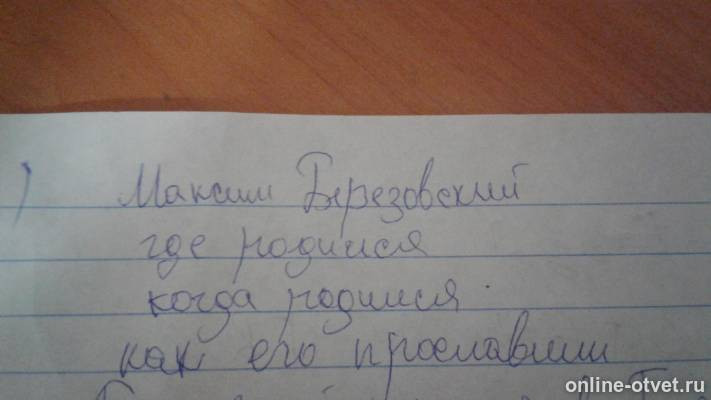 ) Максим Березовский
где родился
когда родился
как его прославили
online-otvet.ru